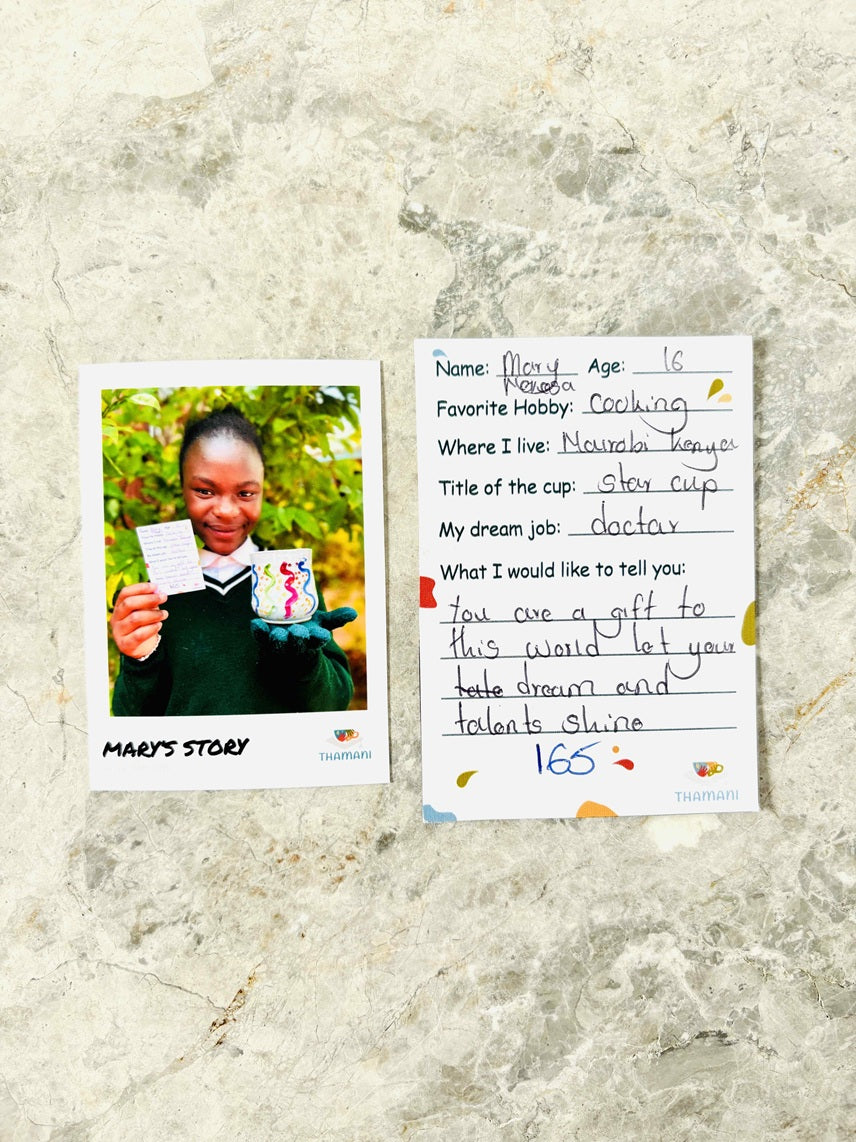 MARY'S STORY
THAMANI
Name: Mary Age: 16
Favorite Hobby: Cooking
Where I live: Nairobi Kenya
Title of the cup: star cup
My dream job: doctar
What I would like to tell you:
You are a gift to
this world let your
dream and
talents shine
165
THAMANI